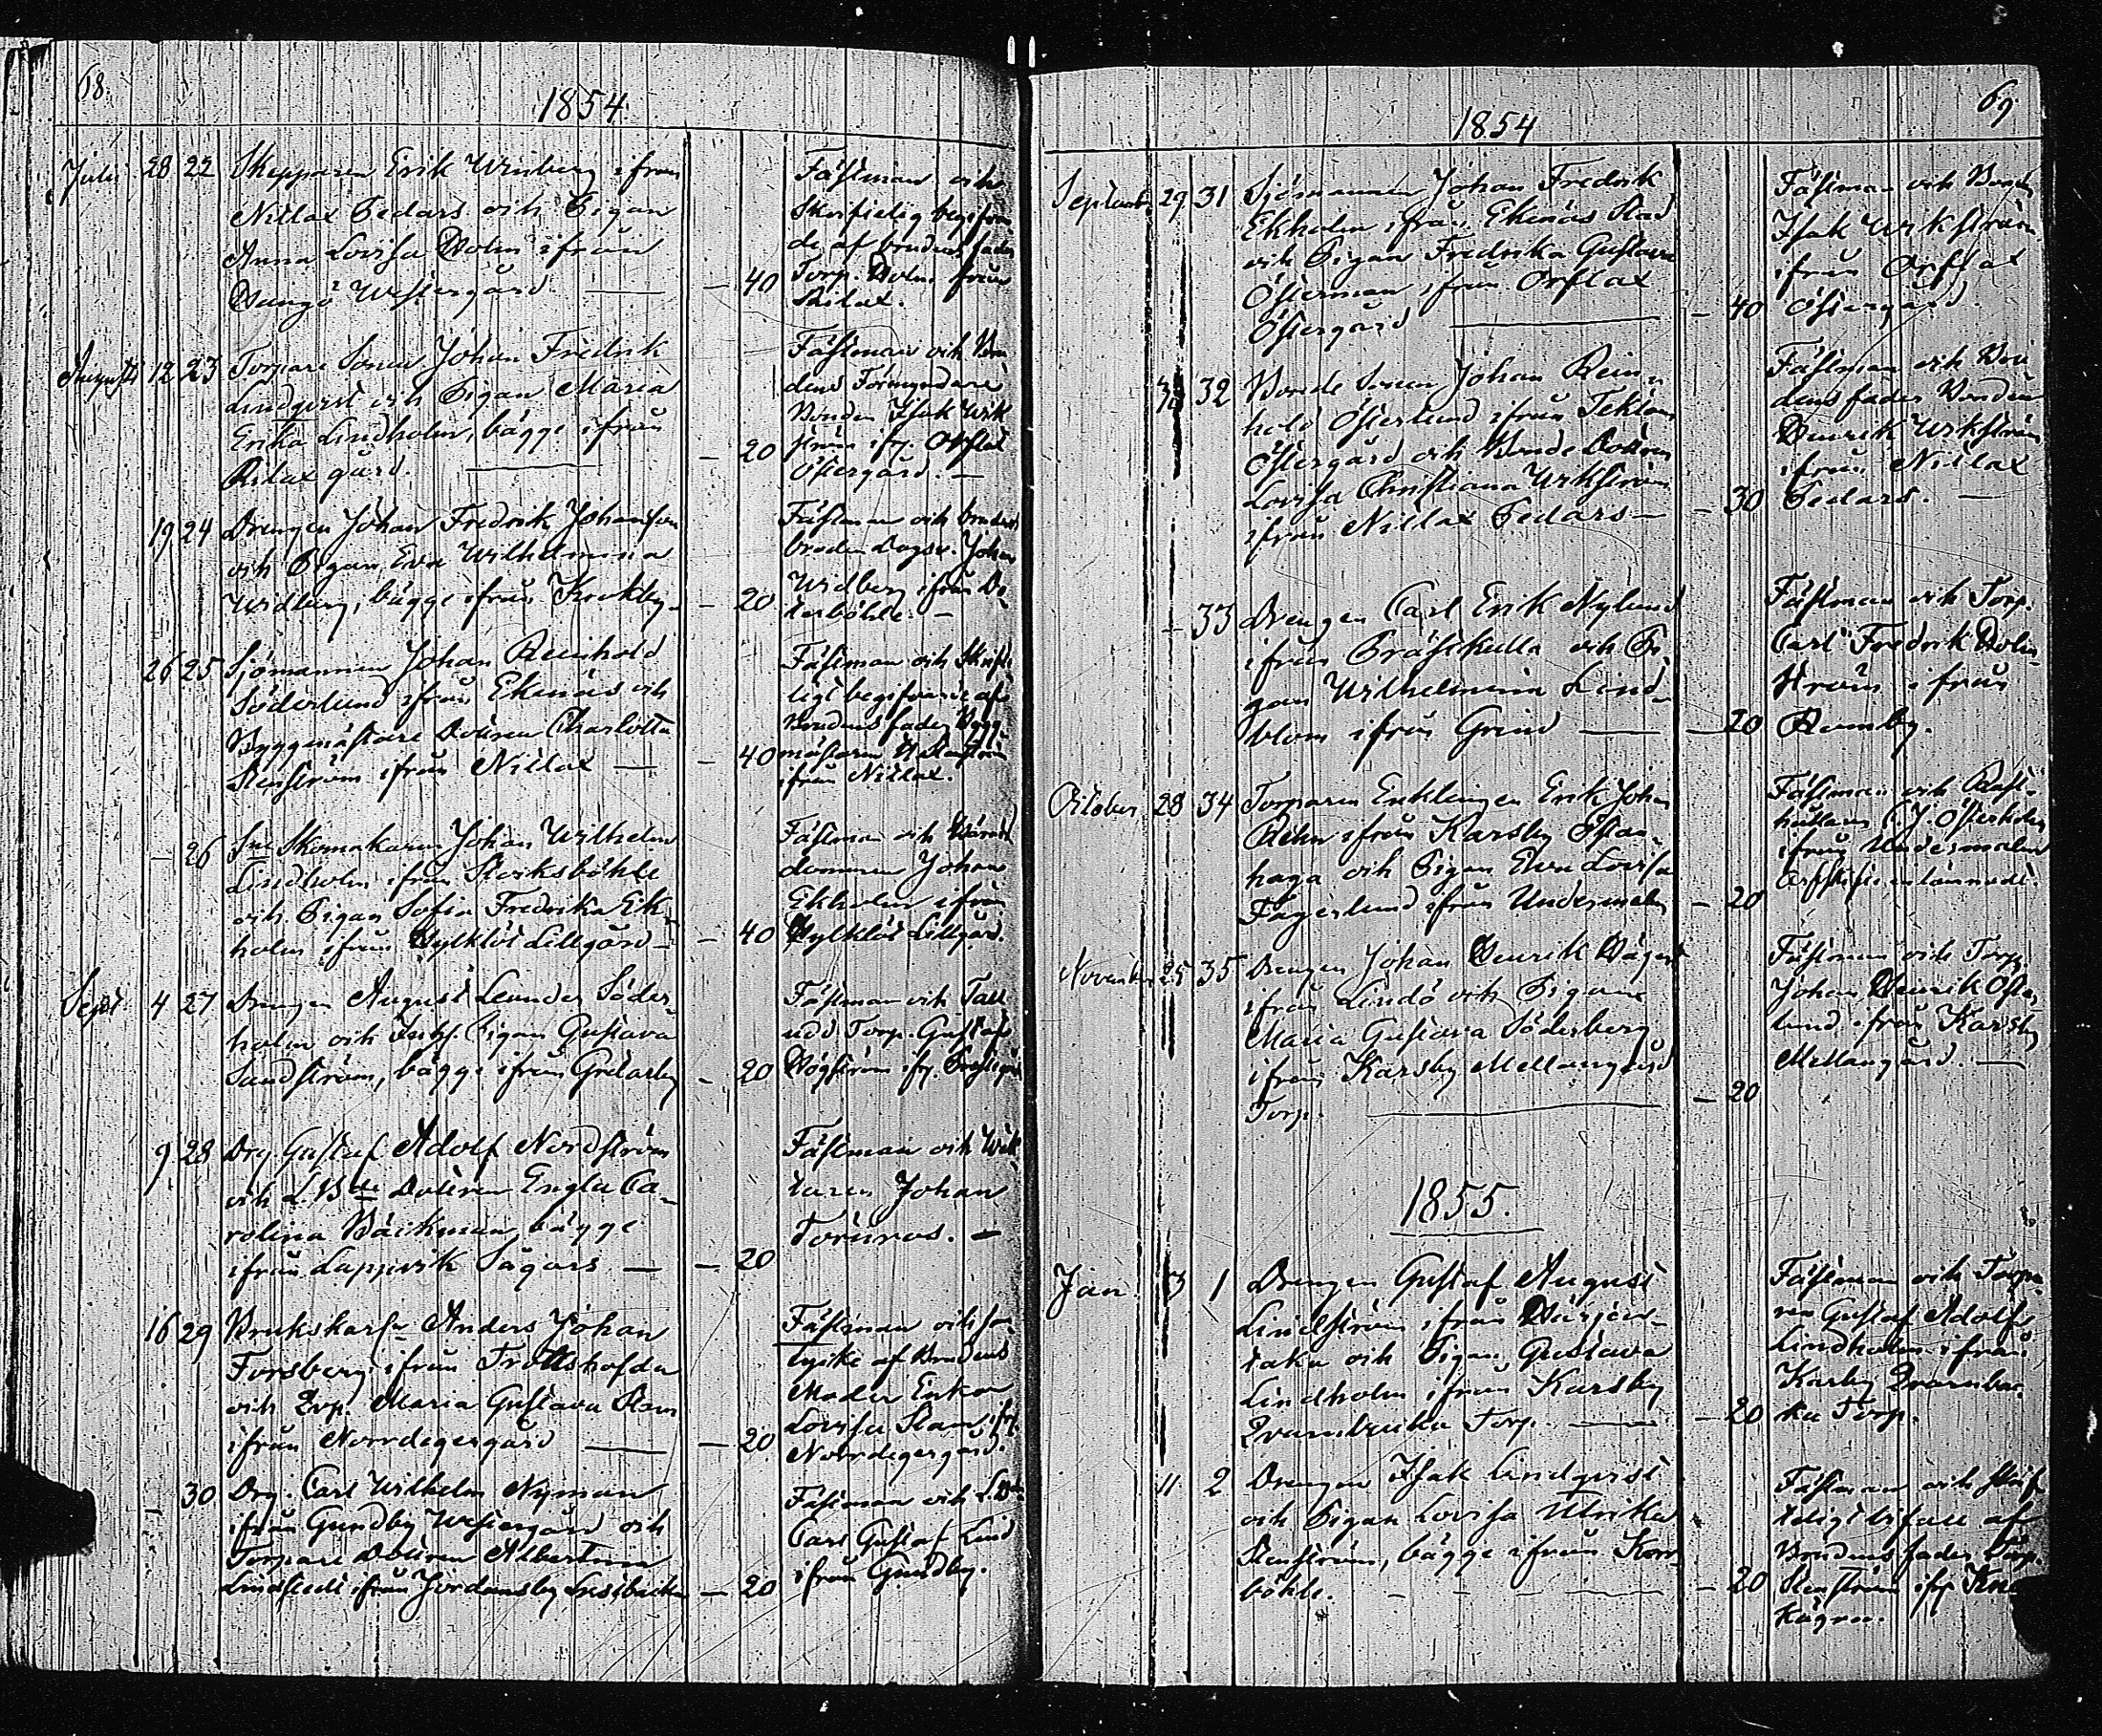 68.
1854
Julii 28 22 Skepparen Erik Winberg ifrån
Nitlax Pedars och Pigan
Anna Lovisa Holm ifrån
Hangö Westergård. — 40
Fästman och
Skriftelig begifvan
de af brudens fader
Torp. Holm från
Rilax.
Augusti 12 23 Torpare Sonen Johan Fredrik
Lindqvist och Pigan Maria
Erika Lindholm, bägge ifrån
Rilax gård. — 20
Fästman och Bru
dens Förmyndare
Bonden Isak Wik
ström ifr. Orslax
Östergård. —
19 24 Drengen Johan Fredrik Johansson
och Pigan Eva Wilhelmina
Widberg, bägge ifrån Krokby — 20
Fästman och brudens
broder Dagsv. Johan
Widberg ifrån
terböhle. —
26 25 Sjömannen Johan Reinhold
Söderlund ifrån Ekenäs och
Byggmästare Dottren Charlotta
Stenström ifrån Nitlax — 40
Fästman och Skrift
ligt begifvande af
Brudens fader Bygg
mästaren Stenström
ifrån Nitlax.
— 26 Skomakaren Johan Wilhelm
Lindholm ifrån Starksböhle
och Pigan Sofia Fredrika Ek
holm ifrån Gylklöt Lillgård — 40
Fästman och
Johan
Ekholm ifrån
Gylklöt Lillgård.
Sept 4 27 Drengen August Leander Söder
holm och Inhys. Pigan Gustava
Sandström, bägge ifrån Gretarby — 20
Fästman och
Torp. Gustaf
Högström ifr.
9 28 Drg Gustaf Adolf Nordström
och L. Bde Dottren Engla Ca-
rolina Bäckman, bägge
ifrån Lappvik Sågars — — 20
Fästman och
Johan
Törnroos. —
16 29 Brukskarln Anders Johan
Forsberg ifrån Trollshofda
och Pig. Maria Gustava Stam
ifrån Norrdegergård — 20
Fästman och sam
tycke af Brudens
Moder Enkan
Lovisa Stam ifr
Norrdegergård.
— 30 Drg. Carl Wilhelm Nyman
ifrån Gundby Westergård och
Torpare Dottren Albertina
Lindstedt ifrån Jordansby — 20
Fästman och L.Bn
Carl Gustaf Lind
ifrån Gundby.
69
1854
September 29 31 Sjömannen Johan Fredrik
Ekholm ifrån Ekenäs Stad
och Pigan Fredrika Gustava
Österman ifrån Orslax
Östergård — 40
Fästman och Bonden
Isak Wikström
ifrån Orslax
Östergård.
30 32 Bonde Sonen Johan Rein-
hold Österlund ifrån Tektom
Östergård och Bonde Dottren
Lovisa Christiana Wikström
ifrån Nitlax Pedars — 30
Fästman och Bru
dens fader Bonden
Henrik Wikström
ifrån Nitlax
Pedars. —
— 33 Drengen Carl Erik Nylund
ifrån Prästkulla och Pi-
gan Wilhelmina Lind-
blom ifrån Grind — 20
Fästman och Torp.
Carl Fredrik Holm-
ström ifrån
Romby.
October 28 34 Torparen Enklingen Erik Johan
Rehn ifrån Karsby Östan-
haga och Pigan Elva Lovisa
Fagerlund ifrån Undermalm — 20
Fästman och Rust-
hållaren C. J Österholm
ifrån Undermalm
November 25 35 Drengen Johan Henrik Hägert
ifrån Lindö och Pigan
Maria Gustava Söderberg
ifrån Karsby Mellangård
Torp. — 20
Fästman och Torp.
Johan Henrik Öster
lund ifrån Karsby
Mellangård. —
1855.
Jan. 13 1 Drengen Gustaf August
Lindström ifrån
och Pigan Gustava
Lindholm ifrån Karsby
Qvarnbacka Torp. — 20
Fästman och Torpa
ren Gustaf Adolf
Lindholm ifrån
Karsby Qvarnbac
ka Torp.
11 2 Drengen Isak Lindqvist
och Pigan Lovisa Ulrika
Stenström, bägge ifrån Kors
böhle. — 20
Fästman och skrif
teligt bifall af
Brudens fader Torp.
Stenström ifr